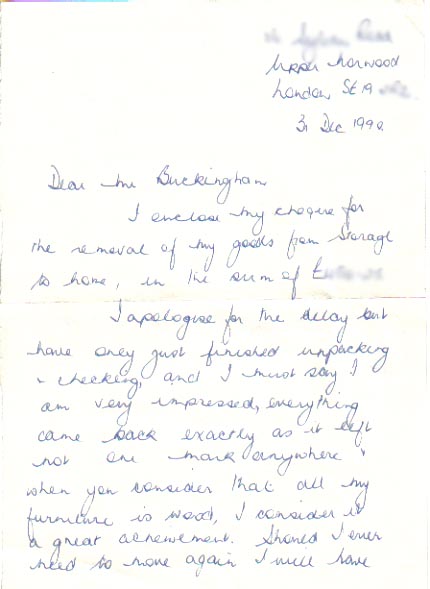 Upper Norwood
London SE19
31 Dec 1990
Dear Mr Buckingham,
I enclose my cheque for
the removal of my goods from storage
to home, in the sum of £
I apologise for the delay but
have only just finished unpacking
& checking, and I must say I
am very impressed, everything
came back exactly as it left
not one mark anywhere &
when you consider that all my
furniture is wood, I consider it
a great achievement. Should I ever
need to move again I will have